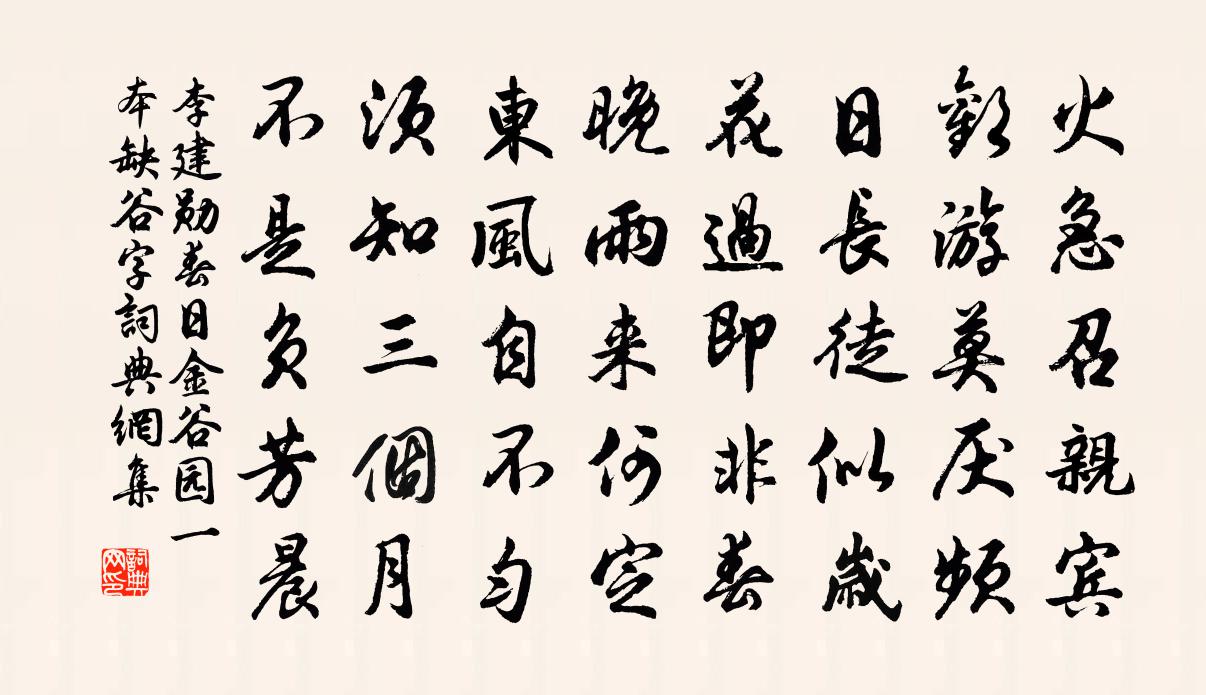 火急召親宾
歡游莫厌頻
日長徒似歲
花過即非春
晚雨来何定
東風自不匀
須知三個月
不是负芳晨
李建勋春日金谷园一
本缺谷字詞典網集
詞典网印